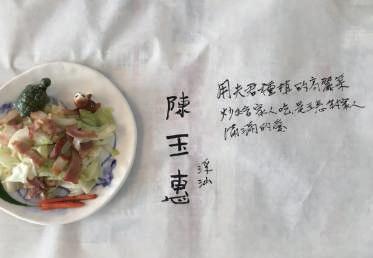 陳玉惠
浮汕
用夫君種植的高麗菜
炒給家人吃,是玉惠對家人
滿滿的愛